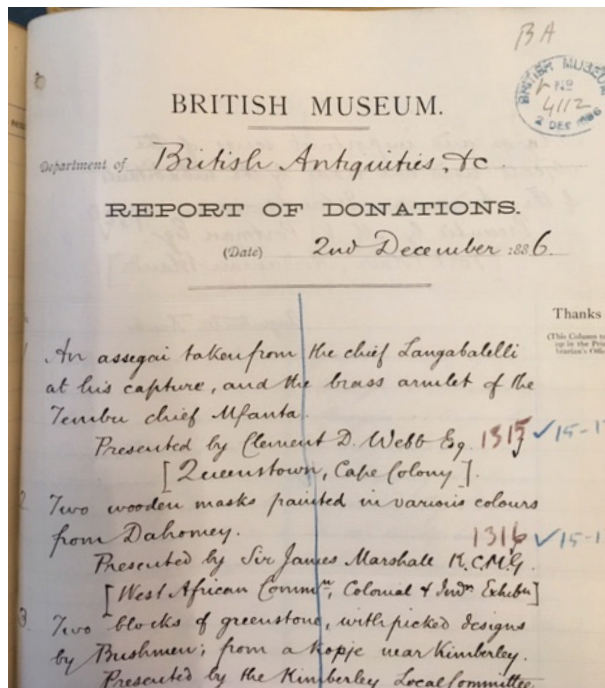 BA
BRITISH MUSEUM
No
4112
2 DEC 1886
BRITISH MUSEUM.
Department of British Antiquities, &c.
REPORT OF DONATIONS.
(Date) 2nd December 1886.
Thanks
(This Column to
up in the Prin
brarian's Offi
1 An assegai taken from the chief Langabalelli
at his capture, and the brass armlet of the
Tembu chief Mfanta.
Presented by Clement D. Webb Esq. 1315 ✓15-1
[Queenstown, Cape Colony].
2 Two wooden masks painted in various colours
from Dahomey. 1316 ✓15-1
Presented by Sir James Marshall K.C.M.G.
[West African Commrs, Colonial & Indn Exhibn]
3. Two blocks of greenstone, with picked designs
by Bushmen; from a kopje near Kimberley.
Presented by the Kimberley Local Committee,